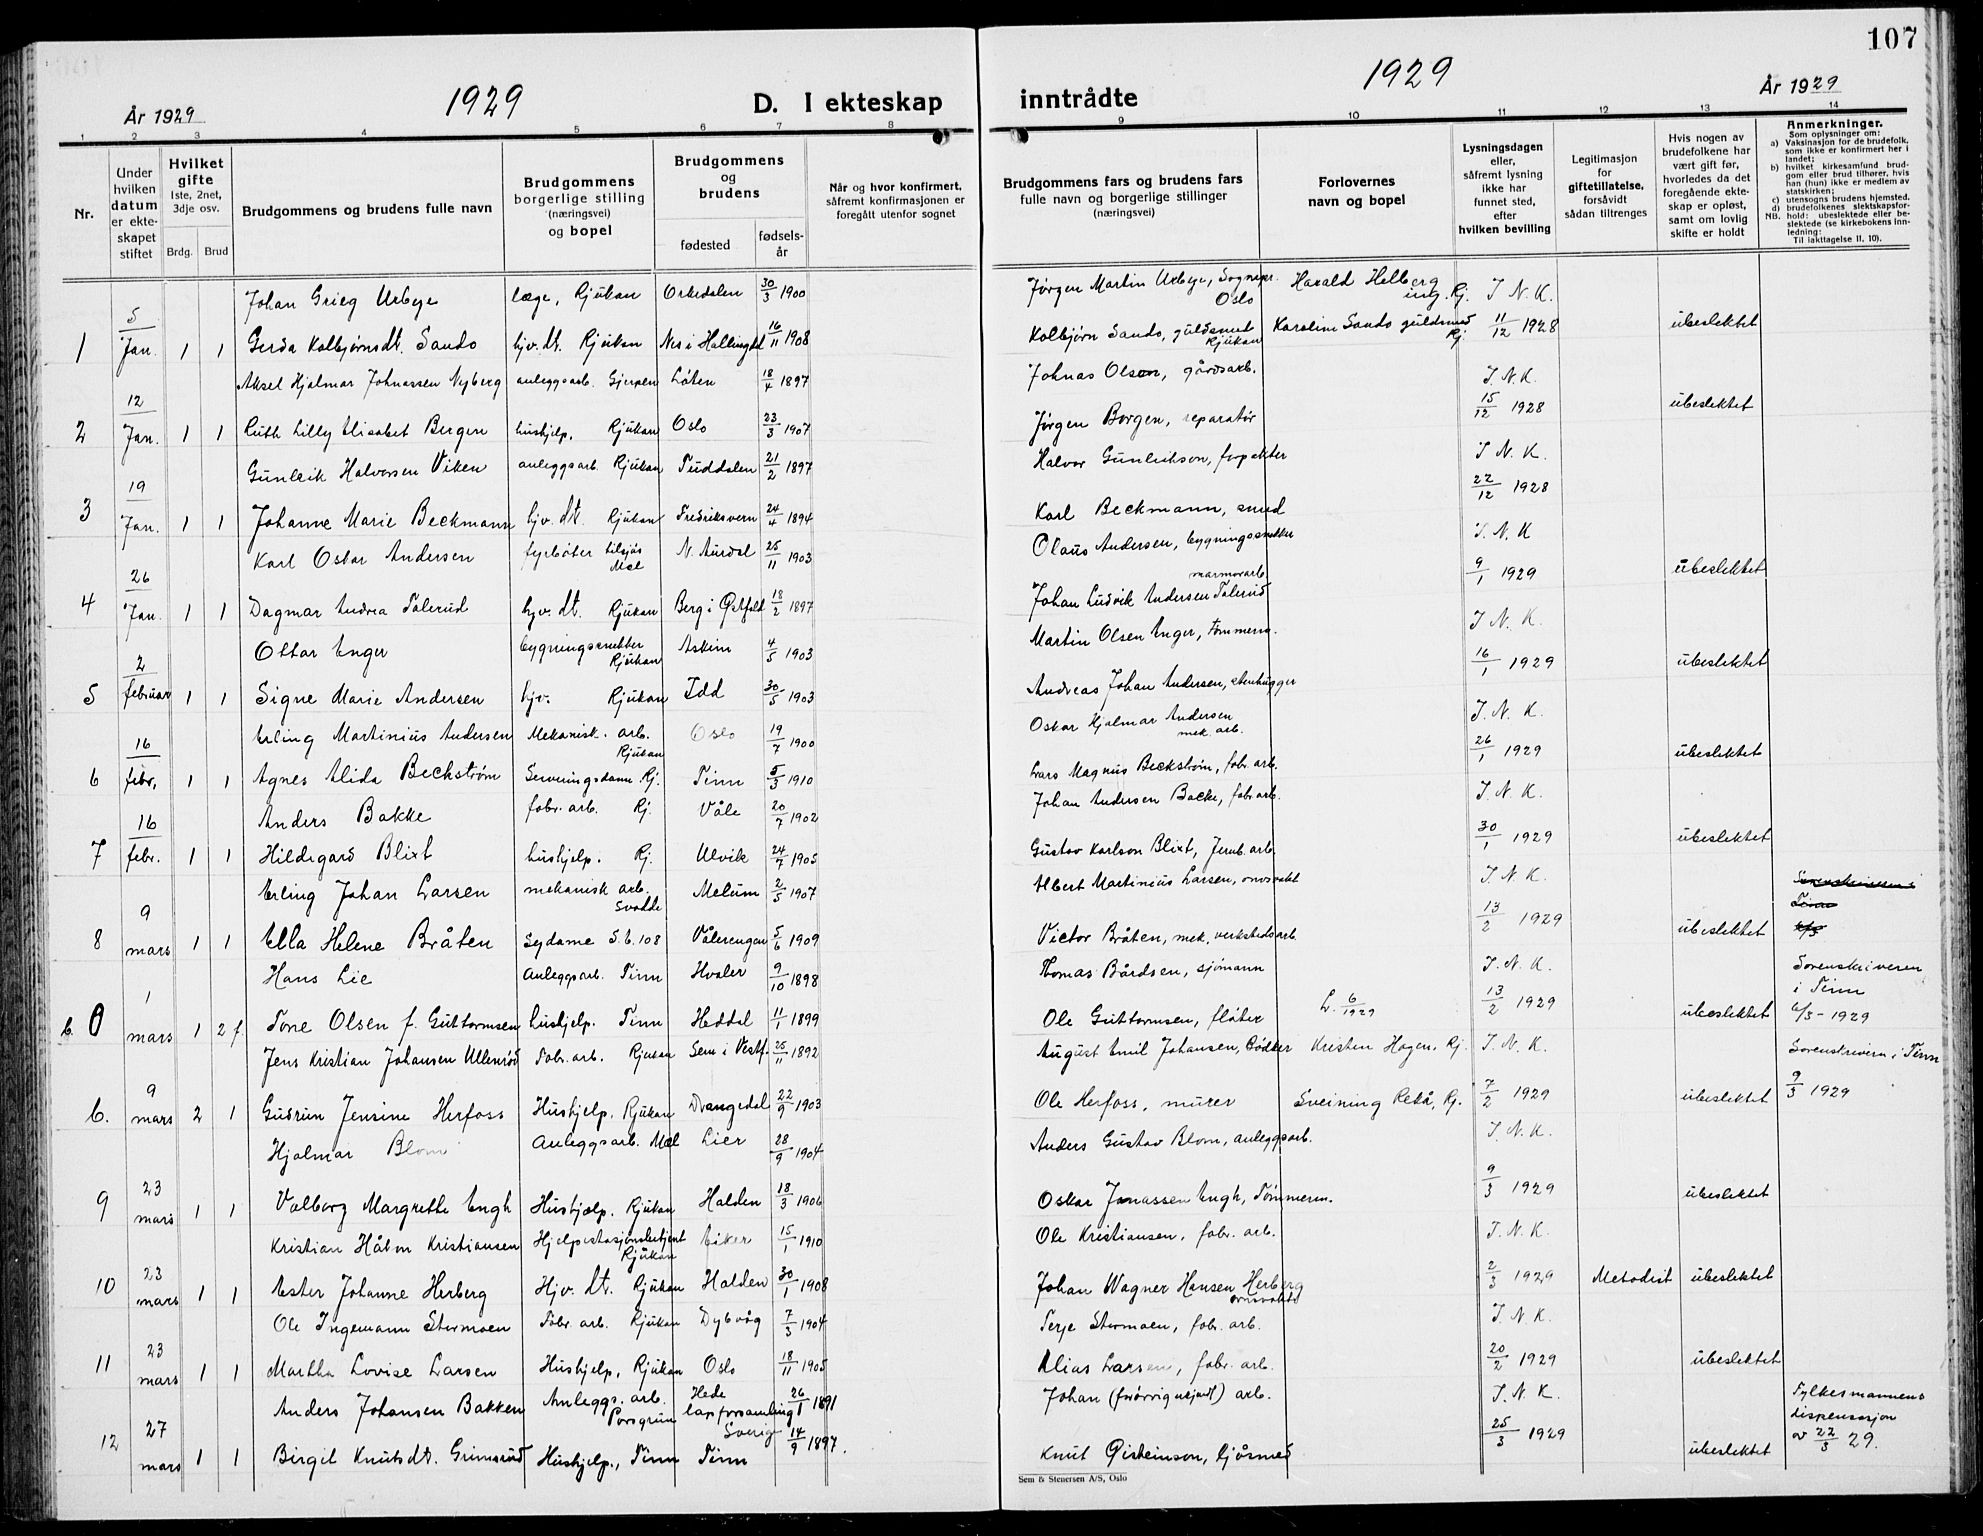 107
1929
1929
År 1929
D. I ekteskap inntrådte
År 1929
1 2 3 4 5 6 7 8 9 10 11 12 13 14
Nr.
Under hvilken datum er ekteskapet stiftet
Hvilket gifte 1ste, 2net, 3dje osv.
Brdg. Brud
Brudgommens og brudens fulle navn
Brudgommens borgerlige stilling (næringsvei) og bopel
Brudgommens og brudens
fødested fødselsår
Når og hvor konfirmert, såfremt konfirmasjonen er foregått utenfor sognet
Brudgommens fars og brudens fars fulle navn og borgerlige stillinger (næringsvei)
Forlovernes navn og bopel
Lysningsdagen eller, såfremt lysning ikke har funnet sted, efter hvilken bevilling
Legitimasjon for giftetillatelse, forsåvidt sådan tiltrenges
Hvis nogen av brudefolkene har vært gift før, hvorledes da det foregående ekteskap er opløst, samt om lovlig skifte er holdt
Anmerkninger.
Som oplysninger om:
a) Vaksinasjon for de brudefolk, som ikke er konfirmert her i landet;
b) hvilket kirkesamfund brudgom eller brud tilhører, hvis han (hun) ikke er medlem av statskirken;
c) utensogns brudens hjemsted.
d) brudefolkenes slektskapsforhold: ubeslektede eller beslektede (se kirkebokens innledning:
NB.
Til iakttagelse II, 10).
Johan Grieg Urbye læge, Rjukan Orkedalen 30/3 1900 Jørgen Martin Urbye, Sognepr. Oslo Harald Helberg ing. Rj. J. N. K.
1 5/Jan. 1 1 Gerda Kolbjørnsdt. Sando hjv. dt. Rjukan Nes i Hallingdal 16/11 1908 Kolbjørn Sando, guldsmed Rjukan Karoline Sando guldsmed Rj. 11/12 1928 ubeslektet
Aksel Hjalmar Johnassen Nyberg anleggsarb. Gjerpen Løten 18/4 1897 Johnas Olsen, gårdsarb. J. N. K.
2 12/Jan. 1 1 Ruth Lilly Elisabet Borgen hushjelp. Rjukan Oslo 23/3 1907 Jørgen Borgen, reparatør 15/12 1928 ubeslektet
Gunleik Halvorsen Viken anleggsarb. Rjukan Tuddalen 21/2 1897 Halvor Gunleikson, forpakter J. N. K.
3 19/Jan. 1 1 Johanne Marie Beckmann hjv. dt. Rjukan Fredriksvern 24/4 1894 Karl Beckmann, smed 22/12 1928
Karl Oskar Andersen fyrbøter Mæl N. Aurdal 25/11 1903 Olaus Andersen, bygningssnekker J. N. K
4 26/Jan. 1 1 Dagmar Andrea Tolerud hjv. dt. Rjukan Berg i Østfold 18/2 1897 Johan Ludvik Andersen Tolerud marmorarb. 9/1 1929 ubeslektet
Ottar Enger bygningssnekker Rjukan Askim 4/5 1903 Martin Olsen Enger, tømmerm. J. N. K.
5 2/februar 1 1 Signe Marie Andersen hjv. Rjukan Idd 30/5 1903 Andreas Johan Andersen, stenhugger 16/1 1929 ubeslektet
Erling Martinius Andersen Mekanisk. arb. Rjukan Oslo 19/7 1900 Oskar Hjalmar Andersen mek. arb. J. N. K.
6 16/febr. 1 1 Agnes Alida Beckstrøm Serveringsdame Rj. Tinn 5/3 1910 Lars Magnus Beckstrøm, fabr. arb. 26/1 1929 ubeslektet
Anders Bakke fabr. arb. Rj. Våle 20/7 1902 Johan Andersen Bakke, fabr arb. J. N. K.
7 16/febr. 1 1 Hildegard Blixt hushjelp. Rj. Ulvik 24/7 1905 Gustav Karlson Blixt, Jernb. arb. 30/1 1929 ubeslektet
Erling Johan Larsen mekanisk arb. Svadde Melum 2/5 1907 Albert Martinius Larsen, ovnsvakt J. N. K.
8 9 mars 1 1 Ella Helene Bråten Sydame S. b. 108 Vålerengen 5/6 1909 Victor Bråten, mek. verkstedsarb. 13/2 1929 ubeslektet
Hans Lie Anleggsarb. Tinn Hvaler 9/10 1898 Thomas Bårdsen, sjømann J. N. K. Sorenskriveren i Tinn
b. 0 1 mars 1 2 f. Tone Olsen f. Guttormsen hushjelp. Tinn Heddal 11/1 1899 Ole Guttormsen, fløter L. 6/1929 13/2 1929 ubeslektet 6/3 - 1929
Jens Kristian Johansen Ullensrød Fabr. arb. Rjukan Sem i Vestf. 25/11 1892 August Emil Johansen, Bødker Kristen Hagen, Rj. J. N. K. Sorenskrivern i Tinn
b. 9 mars 2 1 Gudrun Jensine Herfoss Hushjelp. Rjukan Drangedal 22/9 1903 Ole Herfoss, murer Sveining Retå, Rj. 7/2 1929 ubeslektet 9/3 1929
Hjalmar Blom Anleggsarb. Mæl Lier 28/9 1904 Anders Gustav Blom, anleggsarb. J. N. K.
9 23 mars 1 1 Valborg Margrethe Engh Hushjælp. Rjukan Halden 18/3 1906 Oskar Jonassen Engh, Tømmerm. 9/3 1929 ubeslektet
Kristian Håkon Kristiansen Hjelpestasjonsbetjent Rjukan Eiker 15/1 1910 Ole Kristiansen, fabr. arb. J. N. K.
10 23 mars 1 1 Ester Johanne Herberg Hjv. dt. Rjukan Halden 30/1 1908 Johan Wagner Hansen Herberg ovnsvakt 2/3 1929 Metodist ubeslektet
Ole Ingemann Stermoen Fabr. arb. Rjukan Dybvåg 7/3 1904 Terje Stermoen, fabr. arb. J. N. K.
11 23 mars 1 1 Martha Lovise Larsen Hushjelp, Rjukan Oslo 18/11 1905 Elias Larsen, fabr. arb. 20/2 1929 ubeslektet
Anders Johansen Bakken Anleggs. arb. Porsgrunn Hede lapforsamling Sverig 26/1 1891 Johan (forøvrig ukjent) arb. J. N. K. Fylkesmannens dispensasjon
12 27 mars 1 1 Birgit Knutsdt. Grimsrud Hushjelp., Tinn Tinn 14/9 1897. Knut Gisteinson, Gjøsmed 25/3 1929 ubeslektet av 22/3 29.
Sem & Stenersen A/S, Oslo